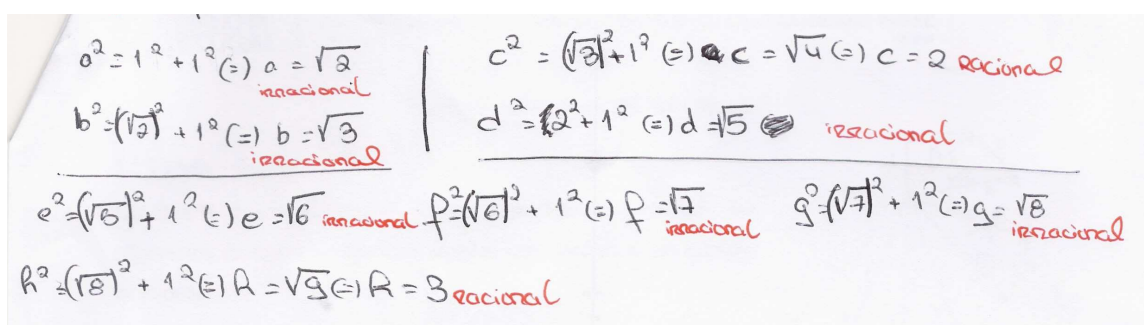 a² = 1² + 1² (=) a = √2
irracional
b² = (√2)² + 1² (=) b = √3
irracional
c² = (√3)² + 1² (=) c = √4 (=) c = 2 Racional
d² = 2² + 1² (=) d = √5 irracional
e² = (√5)² + 1² (=) e = √6 irracional f² = (√6)² + 1² (=) f = √7 irracional g² = (√7)² + 1² (=) g = √8 irracional
h² = (√8)² + 1² (=) h = √9 (=) h = 3 racional